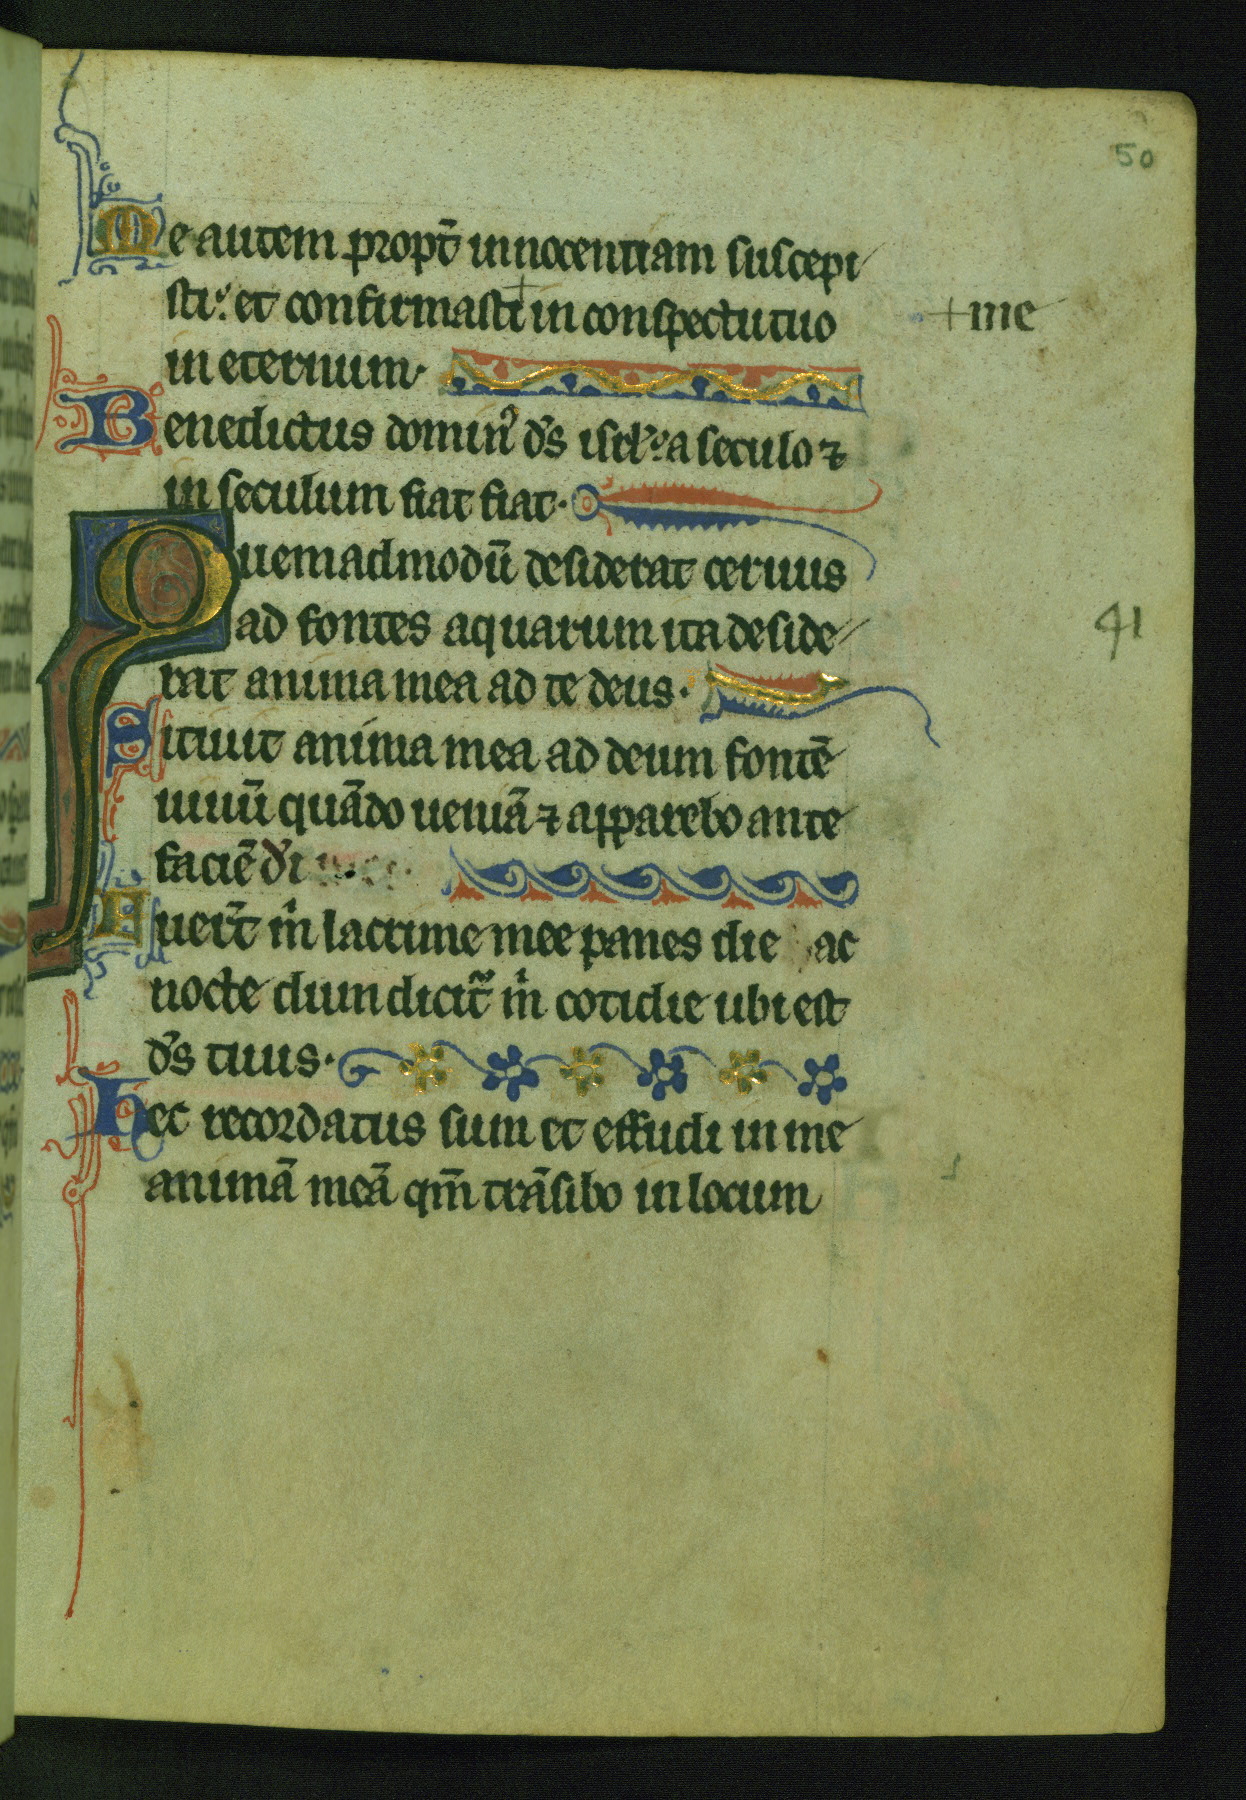 50
Me autem propt̄ innocentiam suscepi
sti: et confirmasti + in conspectu tuo
+ me
in eternum.
Benedictus domin᾽ ds̄ isrl̄: a seculo ⁊
in seculum fiat fiat.
Quemadmodū desiderat ceruus
ad fontes aquarum ita deside
41
rat anima mea ad te deus.
Sitiuit anima mea ad deum fontē
uiuū quādo ueniā ⁊ apparebo ante
faciē dī
Fuer̄t m̄ lacrime mee panes die ac
nocte dum dicit̄ m̄ cotidie ubi est
ds̄ tuus.
Hec recordatus sum et effudi in me
animā meā qm̄ trāsibo in locum